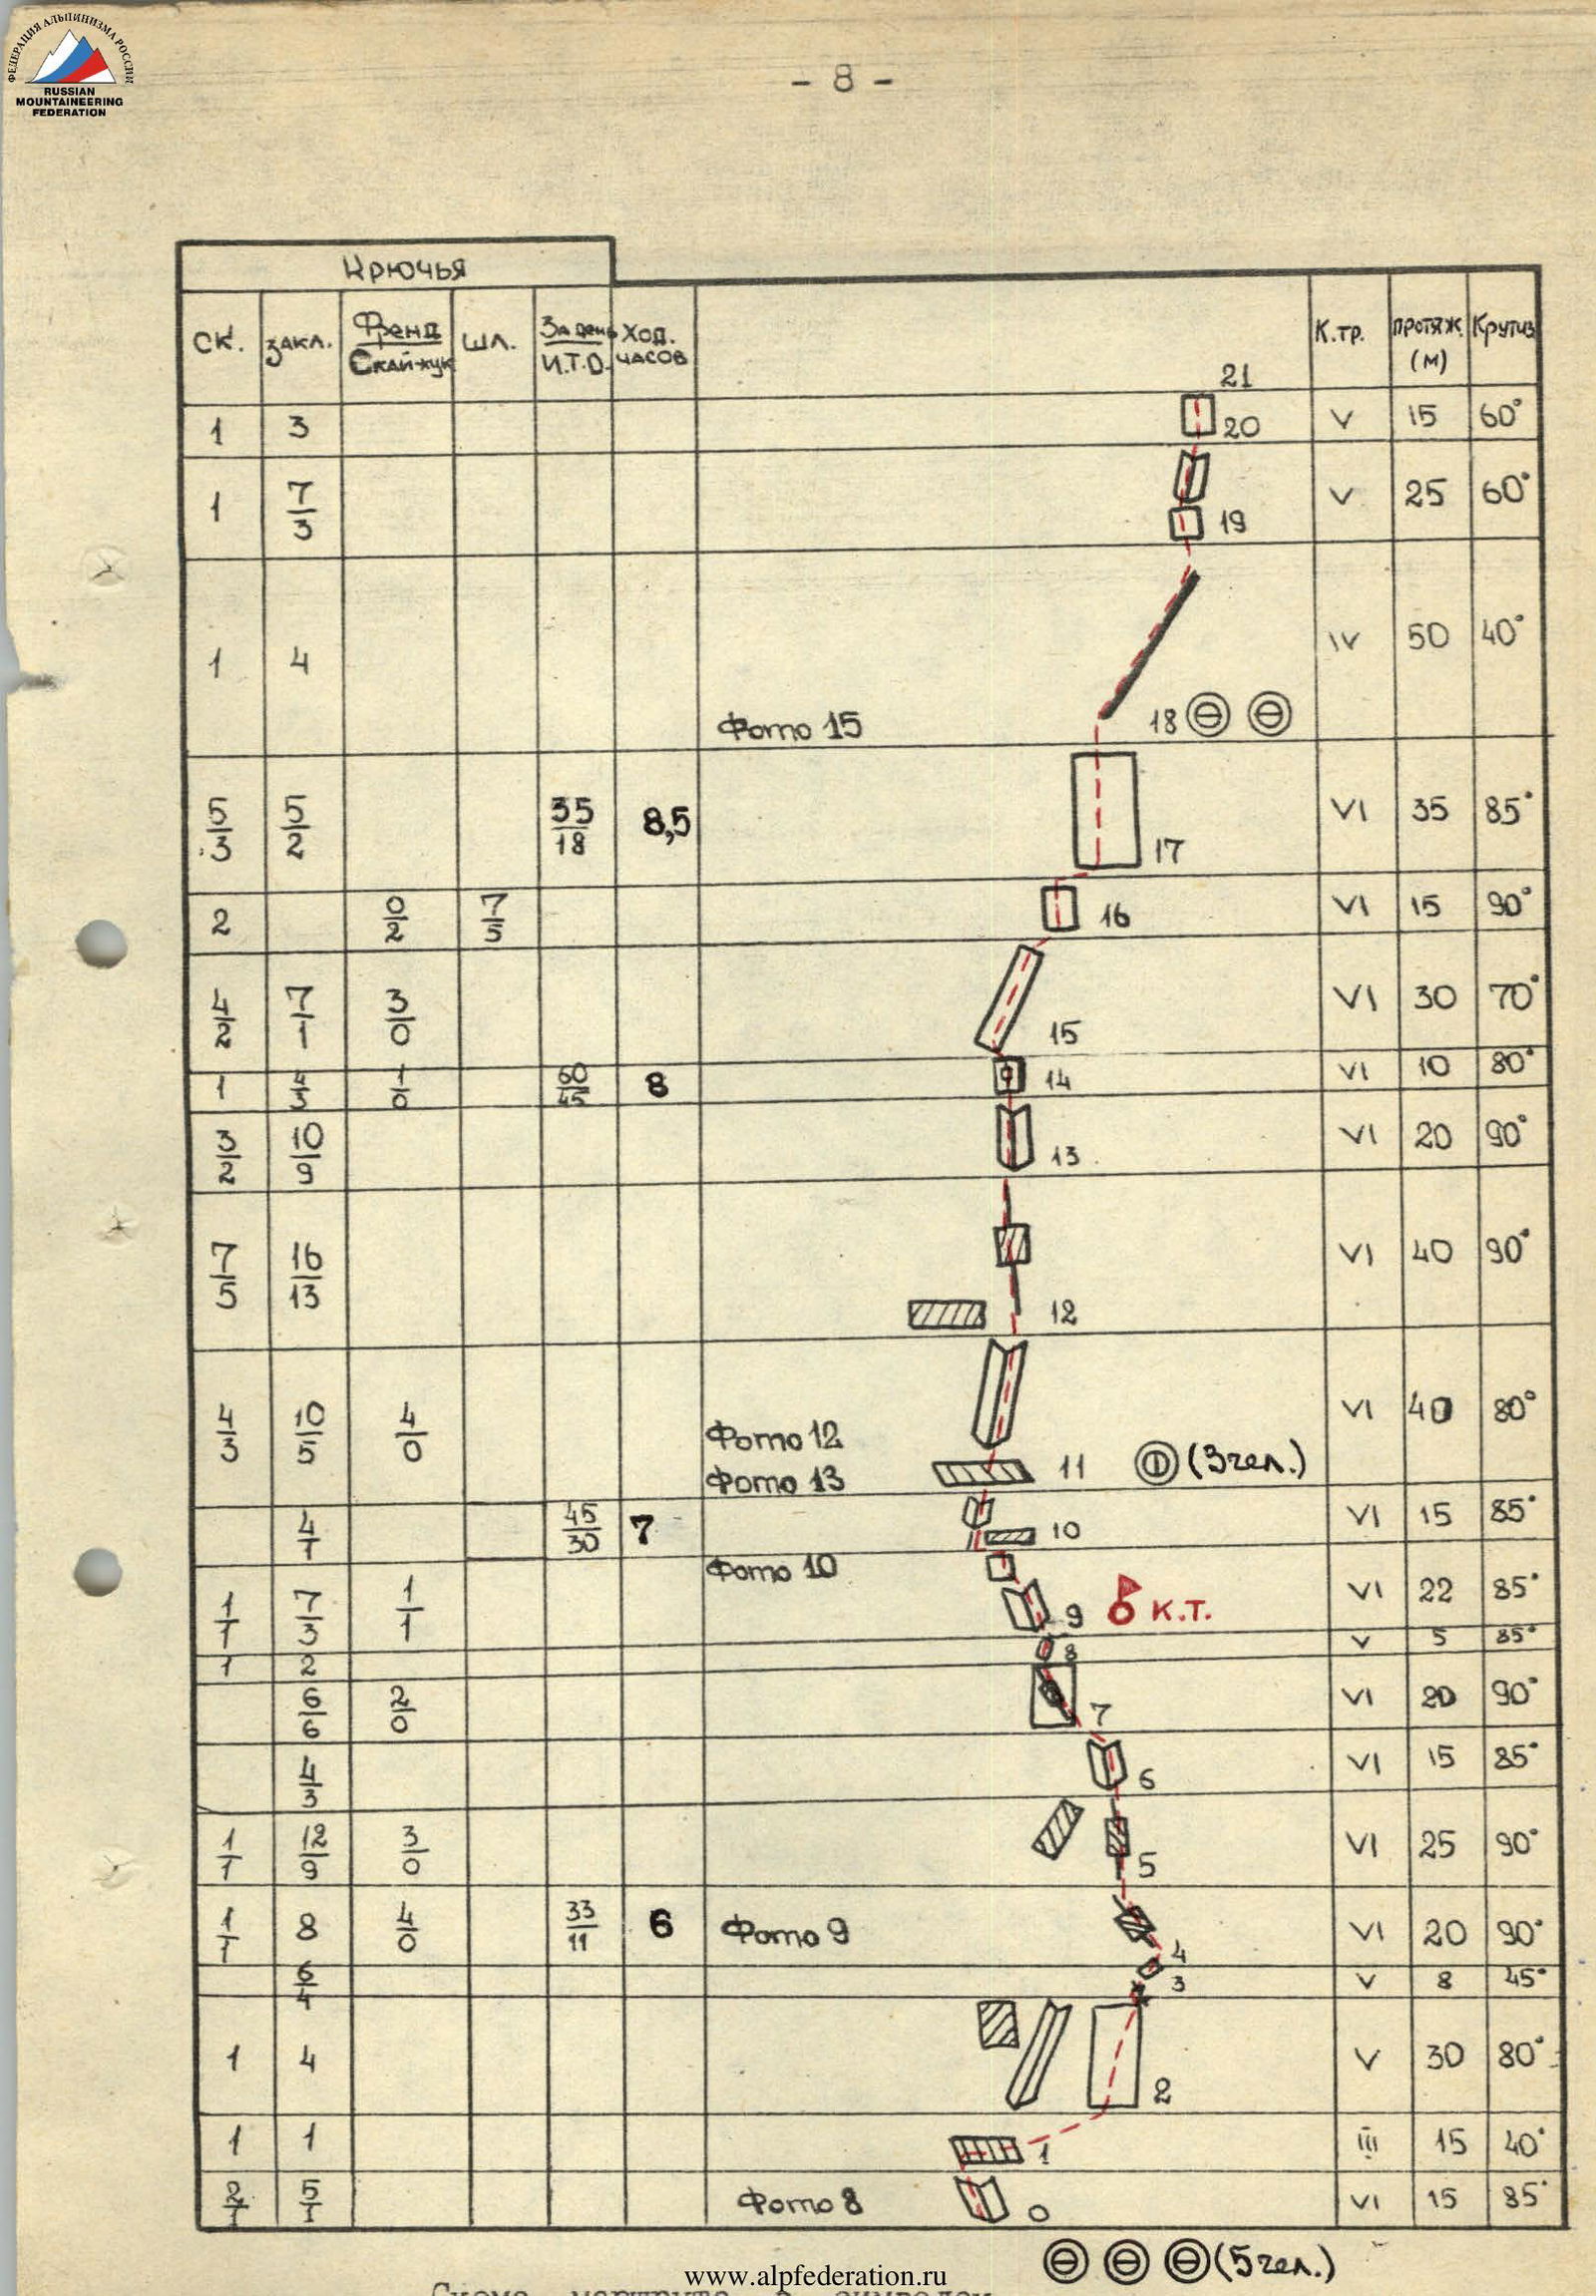 ФЕДЕРАЦИЯ АЛЬПИНИЗМА РОССИИ
RUSSIAN
MOUNTAINEERING
FEDERATION
- 8 -
Крючья
СК. ЗАКЛ. Френд/Скай-хук ШЛ. За день/И.Т.О. ХОД. ЧАСОВ К.ТР. ПРОТЯЖ. (М) Крутиз
21
1 3 20 V 15 60°
1 7/3 19 V 25 60°
1 4 IV 50 40°
Фото 15 18
5/3 5/2 35/18 8,5 17 VI 35 85°
2 0/2 7/5 16 VI 15 90°
4/2 7/1 3/0 15 VI 30 70°
1 4/3 1/0 8 14 VI 10 80°
3/2 10/9 13 VI 20 90°
7/5 16/13 12 VI 40 90°
4/3 10/5 4/0 VI 40 80°
Фото 12
Фото 13 11 (3 чел.)
4/1 45/30 7 10 VI 15 85°
Фото 10
1/1 7/3 1/1 9 К.Т. VI 22 85°
1 2 8 V 5 85°
6/6 2/0 7 VI 20 90°
4/3 6 VI 15 85°
1/1 12/9 3/0 5 VI 25 90°
1/1 8 4/0 33/11 6 Фото 9 4 VI 20 90°
6/4 3 V 8 45°
1 4 2 V 30 80°
1 1 1 III 15 40°
2/1 5/1 Фото 8 0 VI 15 85°
(5 чел.)
www.alpfederation.ru